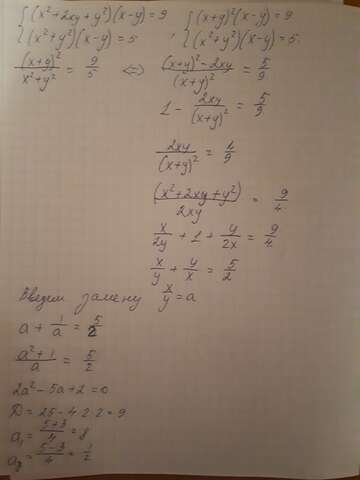 {(x²+2xy+y²)(x-y)=9 {(x+y)²(x-y)=9
{(x²+y²)(x-y)=5 , {(x²+y²)(x-y)=5.
(x+y)²/(x²+y²) = 9/5 <=> ((x+y)²-2xy)/(x+y)² = 5/9
1 - 2xy/(x+y)² = 5/9
2xy/(x+y)² = 4/9
(x²+2xy+y²)/2xy = 9/4
x/2y + 1 + y/2x = 9/4
x/y + y/x = 5/2
Введем замену x/y = a
a + 1/a = 5/2
(a²+1)/a = 5/2
2a²-5a+2=0
D = 25-4·2·2=9
a₁ = (5+3)/4 = 8
a₂ = (5-3)/4 = 1/2